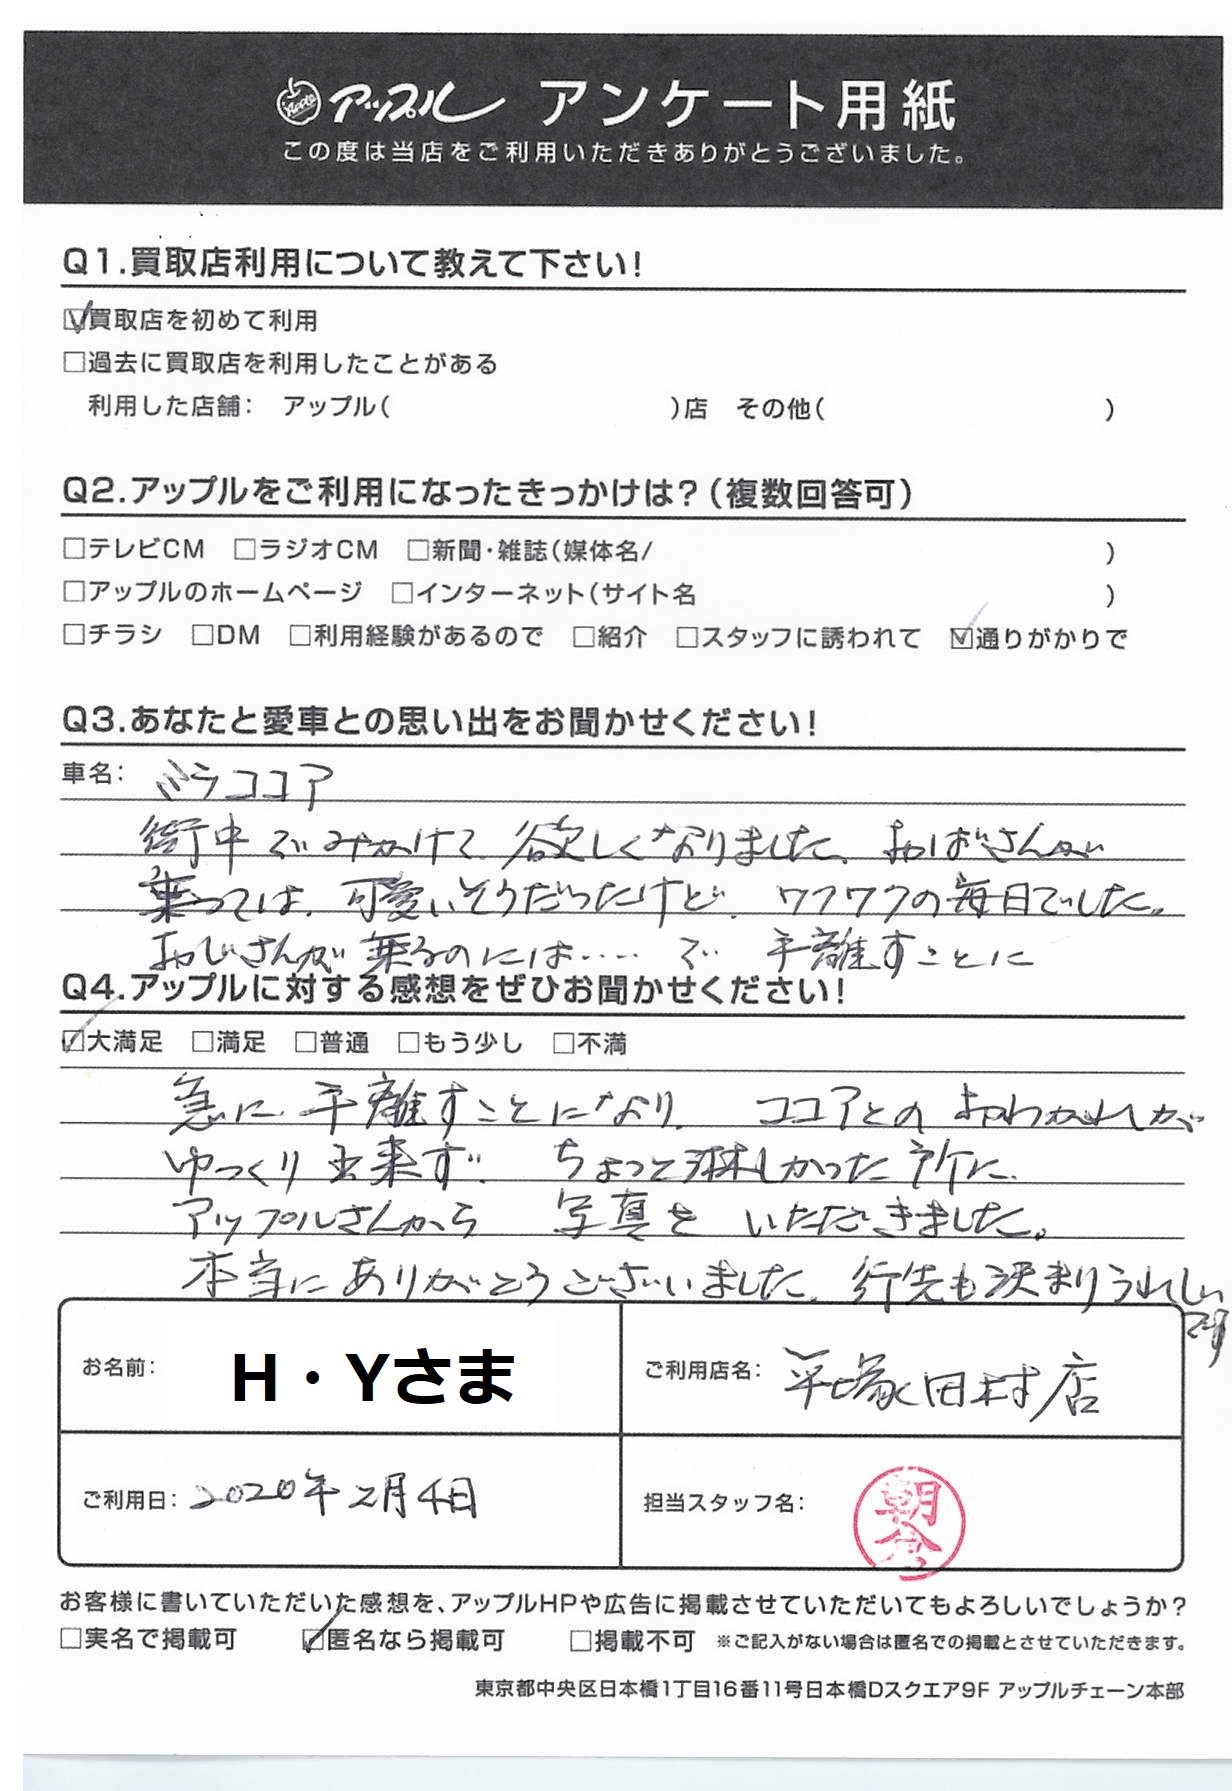 Apple アップル アンケート用紙
この度は当店をご利用いただきありがとうございました。
Q1.買取店利用について教えて下さい!
☑買取店を初めて利用
□過去に買取店を利用したことがある
利用した店舗: アップル( )店 その他( )
Q2.アップルをご利用になったきっかけは?(複数回答可)
□テレビCM □ラジオCM □新聞・雑誌(媒体名/ )
□アップルのホームページ □インターネット(サイト名 )
□チラシ □DM □利用経験があるので □紹介 □スタッフに誘われて ☑通りがかりで
Q3.あなたと愛車との思い出をお聞かせください!
車名: ミラココア
街中でみかけて、欲しくなりました。おばさんが
乗っては、可愛いそうだったけど、ワクワクの毎日でした。
おじさんが乗るのには……で 手離すことに
Q4.アップルに対する感想をぜひお聞かせください!
☑大満足 □満足 □普通 □もう少し □不満
急に手離すことになり、ココアとのおわかれが
ゆっくり出来ず、ちょっと淋しかった所に、
アップルさんから 写真を いただきました。
本当にありがとうございました。行先も決まりうれしい
です
お名前: H・Yさま
ご利用店名: 平塚田村店
ご利用日: 2020年2月4日
担当スタッフ名: 朝倉
お客様に書いていただいた感想を、アップルHPや広告に掲載させていただいてもよろしいでしょうか?
□実名で掲載可 ☑匿名なら掲載可 □掲載不可 ※ご記入がない場合は匿名での掲載とさせていただきます。
東京都中央区日本橋1丁目16番11号日本橋Dスクエア9F アップルチェーン本部